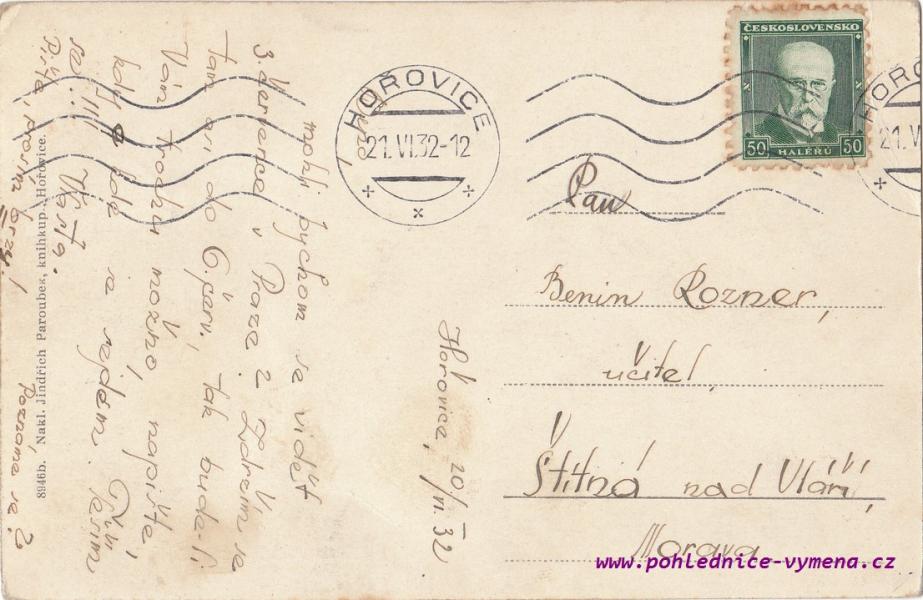 ČESKOSLOVENSKO
50 HALÉŘŮ 50
HOŘOVICE
21.VI.32-12
HOŘO
21.V
Pan
Benin Rozner,
učitel,
Štítná nad Vláří,
Morava
Hořovice, 20/VI. 32
mohli bychom se vidět
3. července v Praze? Zdržím se
tam asi do 6. července, tak bude-li
Vám trochu možno, napište,
kdy a kde se sejdem. Těším
se!!! Vlasta.
Pište, prosím brzy!
Poznáme se?
8946b. Nakl. Jindřich Paroubek, knihkup. Hořovice.
www.pohlednice-vymena.cz